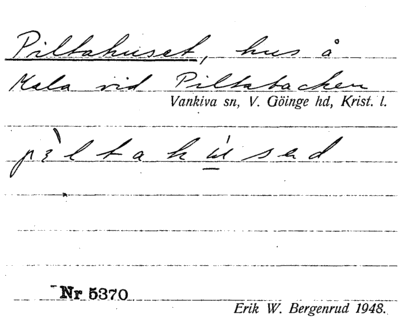 Piltahuset, hus å
Mala vid Piltabacken
Vankiva sn, V. Göinge hd, Krist. l.
Nr 5370
Erik W. Bergenrud 1948.